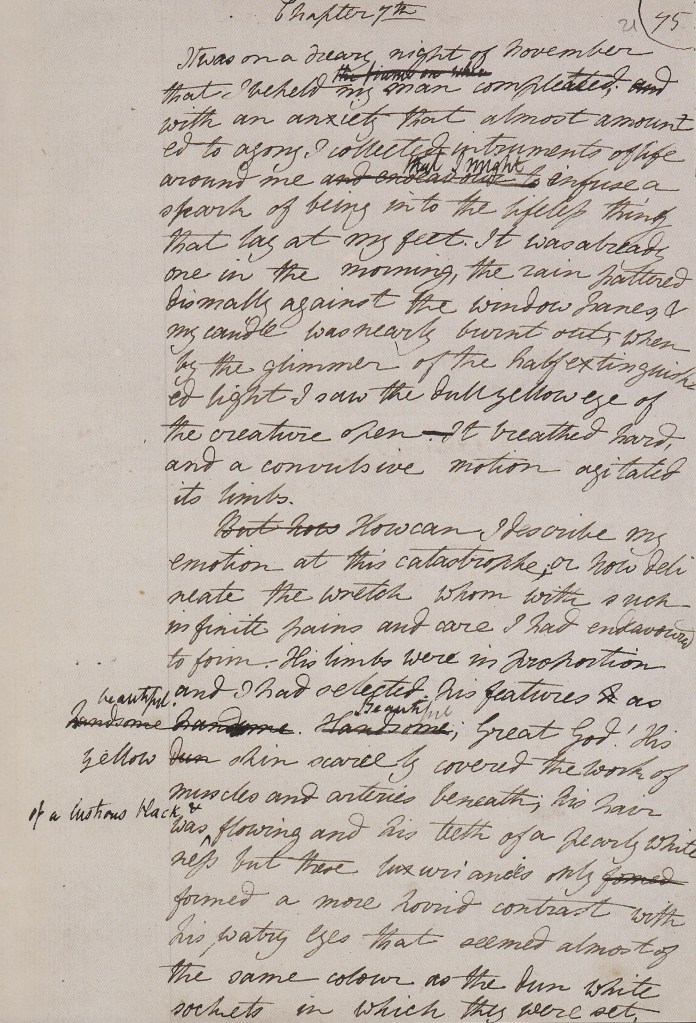 Chapter 7th
21 75
It was on a dreary night of November
the frame on whic
that I beheld my man compleated; and
with an anxiety that almost amount
ed to agony I collected instruments of life
that I might
around me and endeavour to infuse a
spark of being into the lifeless thing
that lay at my feet. It was already
one in the morning, the rain pattered
dismally against the window panes, &
my candle was nearly burnt out, when
by the glimmer of the half extinguish
ed light I saw the dull yellow eye of
the creature open – It breathed hard,
and a convulsive motion agitated
its limbs.
But how How can I describe my
emotion at this catastrophe; or how deli
neate the wretch whom with such
infinite pains and care I had endeavoured
to form. His limbs were in proportion
beautiful. and I had selected his features & as
handsome handsome. Beautiful Handsome; Great God! His
yellow dun skin scarcely covered the work of
muscles and arteries beneath; his hair
of a lustrous black, &
was flowing and his teeth of a pearly white
ness but these luxuriances only formed
formed a more horrid contrast with
his watry eyes that seemed almost of
the same colour as the dun white
sockets in which they were set,